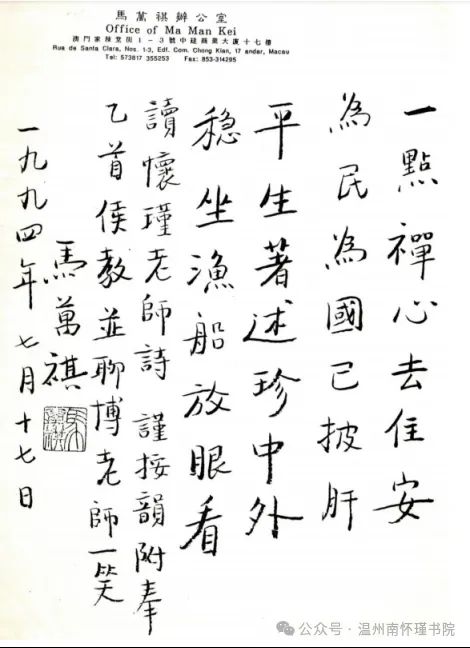 馬萬祺辦公室
Office of Ma Man Kei
澳門家辣堂街1－3號中建商業大廈十七樓
Rua de Santa Clara, Nos. 1-3, Edf. Com. Chong Kian, 17 andar, Macau
Tel: 573817 355253 Fax: 853-314295
一點禪心去住安
為民為國已披肝
平生著述珍中外
稳坐漁船放眼看
讀懷瑾老師詩 謹按韻附奉
乙首侯教並聊博老師一笑
馬萬祺
一九九四年七月十七日
公众号·温州南怀瑾书院